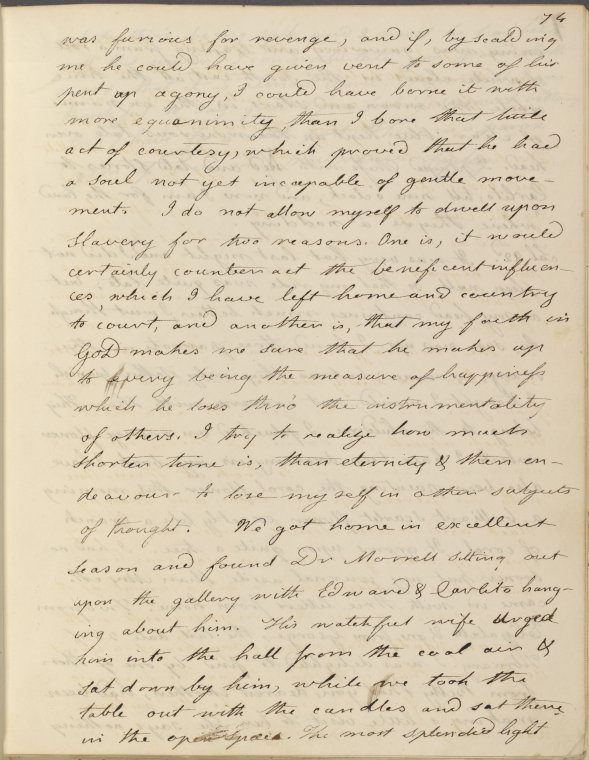 74
was furious for revenge, and if, by scalding
me he could have given vent to some of his
pent up agony, I could have borne it with
more equanimity, than I bore that little
act of courtesy, which proved that he had
a soul not yet incapable of gentle move-
ment. I do not allow myself to dwell upon
slavery for two reasons. One is, it would
certainly counteract the beneficent influen-
ces, which I have left home and country
to court, and another is, that my faith in
GOD makes me sure that he makes up
to every being the measure of happiness
which he loses thro the instrumentality
of others. I try to realize how much
shorter time is, than eternity & then en-
deavour to lose myself in other subjects
of thought. We got home in excellent
season and found Dr Morrell sitting out
upon the gallery with Edward & Carlito hang-
ing about him. His watchful wife urged
him into the hall from the cool air &
sat down by him, while we took the
table out with the candles and sat there
in the open space. The most splendid light